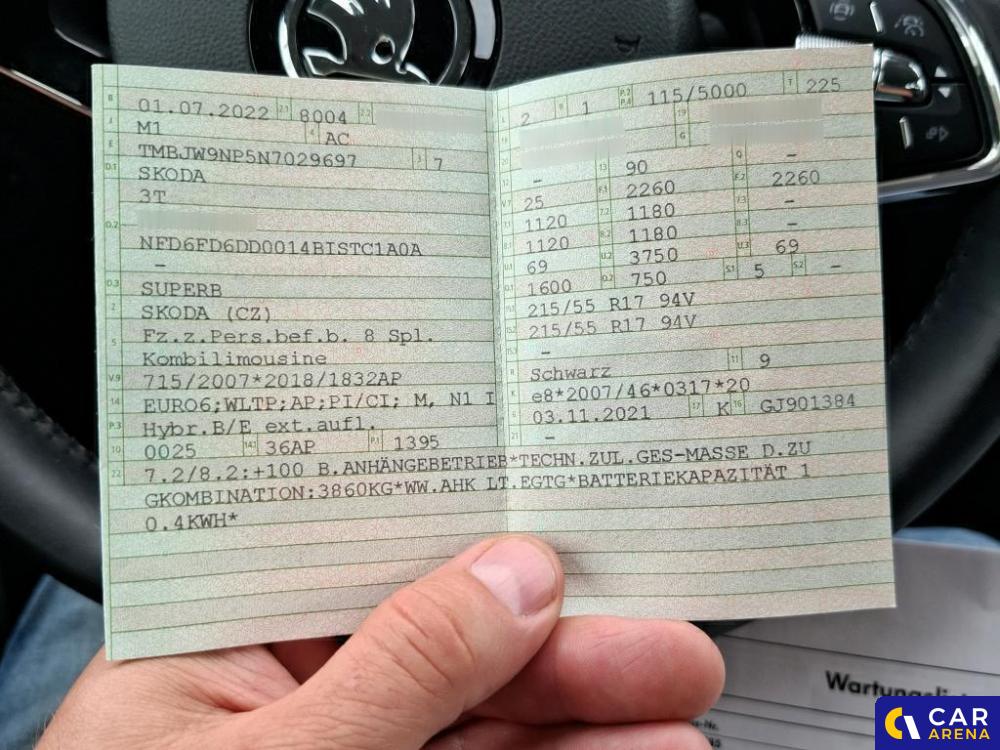 B 01.07.2022 2.1 8004 2.2
J M1 4 AC
E TMBJW9NP5N7029697 3 7
D.1 SKODA
3T
D.2
NFD6FD6DD0014BISTC1A0A
–
D.3 SUPERB
2 SKODA (CZ)
5 Fz.z.Pers.bef.b. 8 Spl.
Kombilimousine
V.9 715/2007*2018/1832AP
14 EURO6;WLTP;AP;PI/CI; M, N1 I
P.3 Hybr.B/E ext.aufl.
10 0025 14.1 36AP P.1 1395
L 2 9 1 P.2 P.4 115/5000 T 225
18 19
20 G
12 – 13 90 Q –
V.7 25 F.1 2260 F.2 2260
7.1 1120 7.2 1180 7.3 –
8.1 1120 8.2 1180 8.3 –
U.1 69 U.2 3750 U.3 69
O.1 1600 O.2 750 S.1 5 S.2 –
15.1 215/55 R17 94V
15.2 215/55 R17 94V
15.3 –
R Schwarz 11 9
K e8*2007/46*0317*20
6 03.11.2021 17 K 16 GJ901384
21 –
22 7.2/8.2:+100 B.ANHÄNGEBETRIEB*TECHN.ZUL.GES-MASSE D.ZU
GKOMBINATION:3860KG*WW.AHK LT.EGTG*BATTERIEKAPAZITÄT 1
0.4KWH*
CAR
ARENA